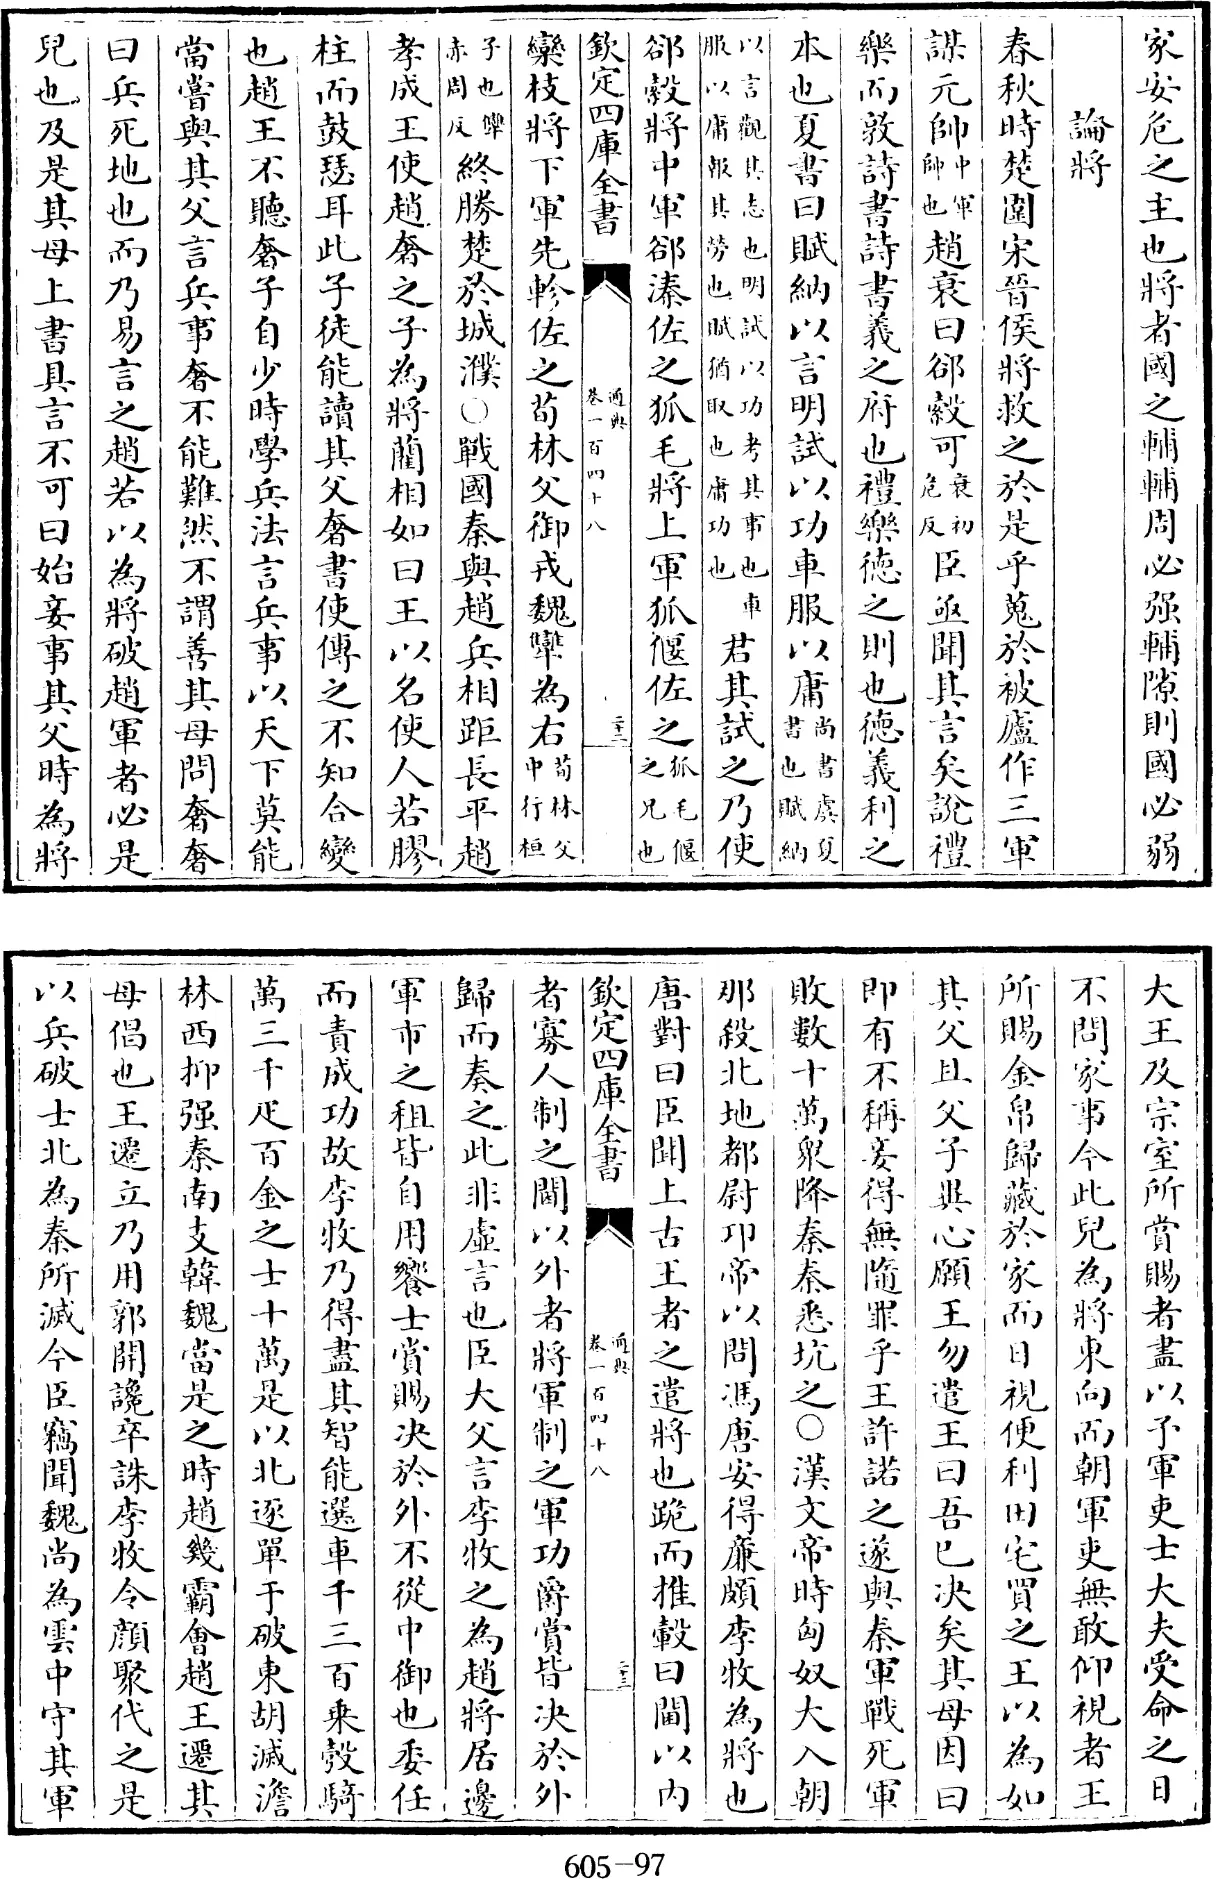 家安危之主也將者國之輔輔周必强輔隙則國必弱
論將
春秋時楚圍宋晉侯將救之於是乎蒐於被廬作三軍
謀元帥中軍帥也趙衰曰郤縠可衰初危反臣亟聞其言矣說禮
樂而敦詩書詩書義之府也禮樂德之則也德義利之
本也夏書曰賦納以言明試以功車服以庸尚書虞夏書也賦納
以言觀其志也明試以功考其事也車服以庸報其勞也賦猶取也庸功也君其試之乃使
郤縠將中軍郤溱佐之狐毛將上軍狐偃佐之狐毛偃之兄也
欽定四庫全書
通典
卷一百四十八
二十二
欒枝將下軍先軫佐之荀林父御戎魏犨為右荀林父中行桓
子也犨赤周反終勝楚於城濮○戰國秦與趙兵相距長平趙
孝成王使趙奢之子為將藺相如曰王以名使人若膠
柱而鼓瑟耳此子徒能讀其父奢書使傳之不知合變
也趙王不聽奢子自少時學兵法言兵事以天下莫能
當嘗與其父言兵事奢不能難然不謂善其母問奢奢
曰兵死地也而乃易言之趙若以為將破趙軍者必是
兒也及是其母上書具言不可曰始妾事其父時為將
大王及宗室所賞賜者盡以予軍吏士大夫受命之日
不問家事今此兒為將東向而朝軍吏無敢仰視者王
所賜金帛歸藏於家而日視便利田宅買之王以為如
其父且父子異心願王勿遣王曰吾已决矣其母因曰
即有不稱妾得無隨罪乎王許諾之遂與秦軍戰死軍
敗數十萬衆降秦秦悉坑之○漢文帝時匈奴大入朝
那殺北地都尉卭帝以問馮唐安得廉頗李牧為將也
唐對曰臣聞上古王者之遣將也跪而推轂曰閫以内
欽定四庫全書
通典
卷一百四十八
二十三
者寡人制之閫以外者將軍制之軍功爵賞皆决於外
歸而奏之此非虛言也臣大父言李牧之為趙將居邊
軍市之租皆自用饗士賞賜决於外不從中御也委任
而責成功故李牧乃得盡其智能選車千三百乘彀騎
萬三千疋百金之士十萬是以北逐單于破東胡滅澹
林西抑强秦南支韓魏當是之時趙幾霸會趙王遷其
母倡也王遷立乃用郭開讒卒誅李牧令顔聚代之是
以兵破士北為秦所滅今臣竊聞魏尚為雲中守其軍
605-97